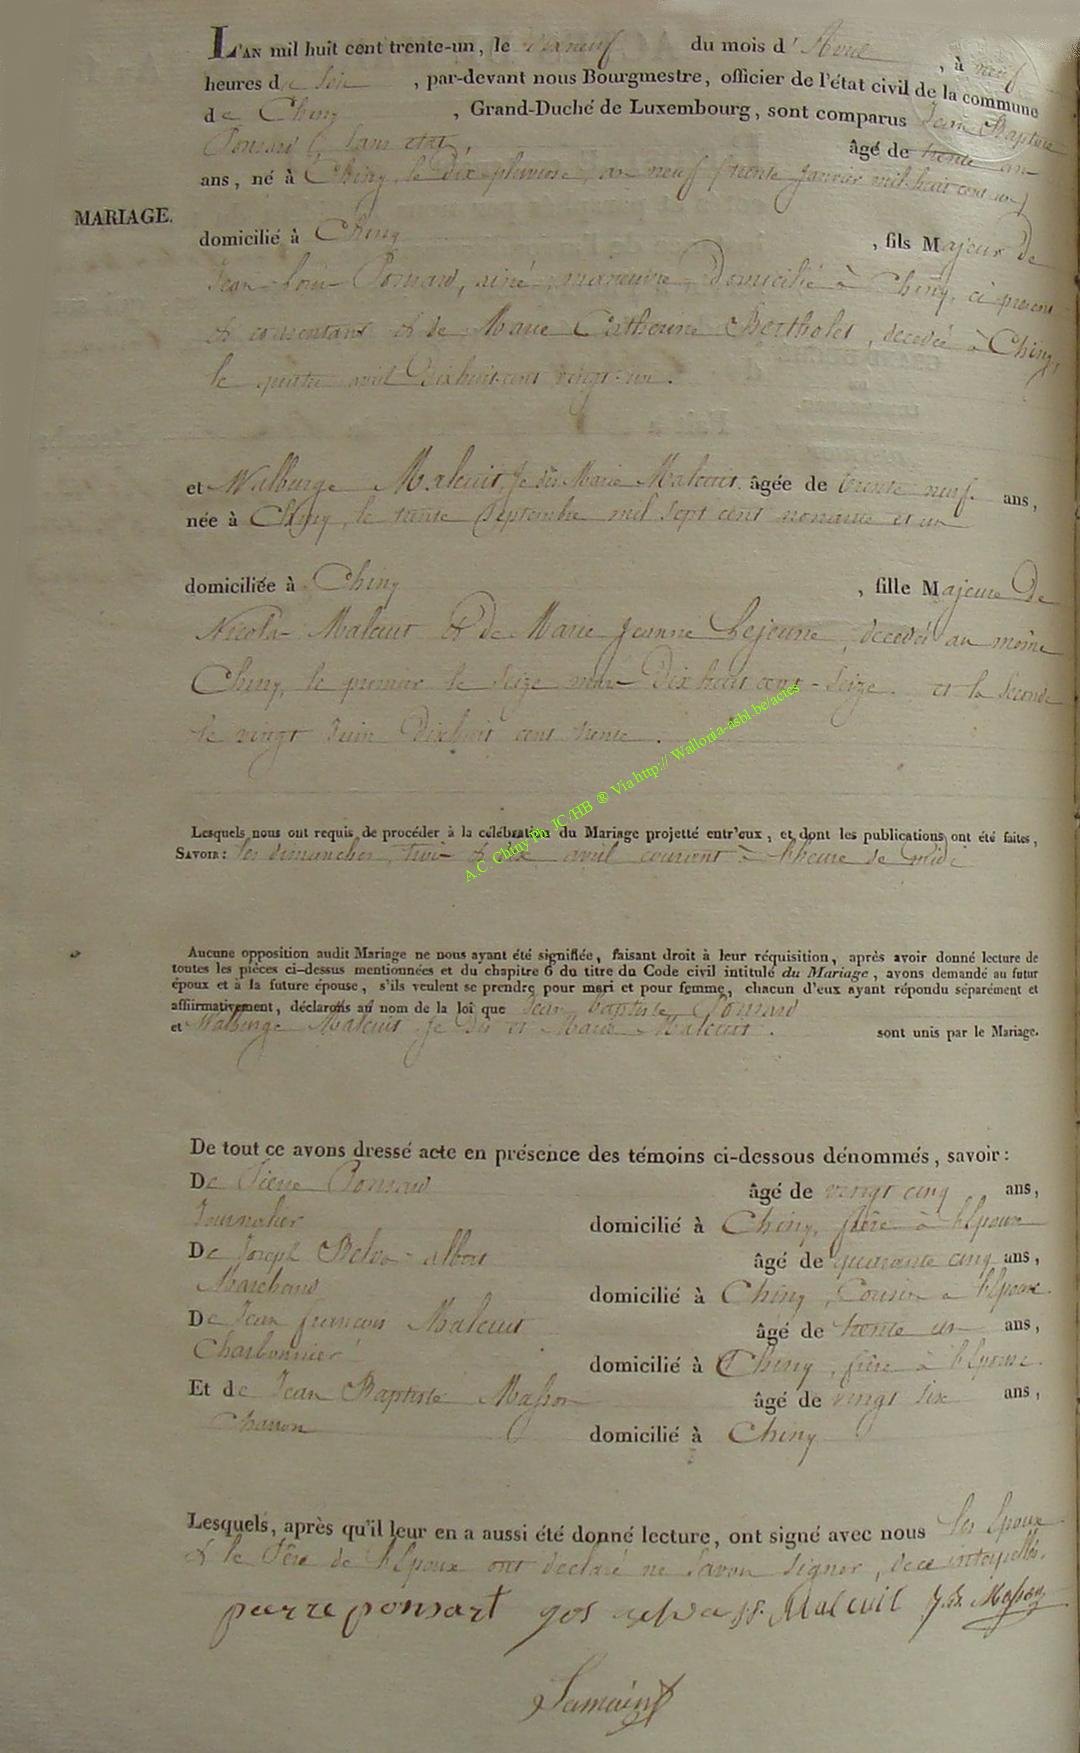 L'AN mil huit cent trente-un, le dixneuf du mois d'Avril, à neuf
heures de soir, par-devant nous Bourgmestre, officier de l'état civil de la commune
de Chiny, Grand-Duché de Luxembourg, sont comparus Jean Baptiste
Ponsard sans état, âgé de trente an
ans, né à Chiny, le dix pluviose an neuf (trente janvier mil-huit cent un)
MARIAGE.
domicilié à Chiny, fils Majeur de
Jean Louis Ponsard, ainé, manœuvre, domicilié à Chiny, ci présent
& consentant & de Marie Catherine Bertholet, décedée à Chiny,
le quatre avril dixhuit-cent vingt-un.
et Walburge Malcuit, je dis Marie Malcuit. âgée de trente neuf ans,
née à Chiny, le trente Septembre mil sept cent nonante et un
domiciliée à Chiny, fille Majeure de
Nicolas Malcuit & de Marie Jeanne Lejeune, décedés au même
Chiny, le premier le seize mars dixhuit cent-seize. et la seconde
le vingt Juin dixhuit cent trente.
Lesquels nous ont requis de procéder à la célébration du Mariage projetté entr'eux, et dont les publications ont été faites,
SAVOIR: les dimanches, trois & dix avril courant à l'heure de midi
Aucune opposition audit Mariage ne nous ayant été signifiée, faisant droit à leur réquisition, après avoir donné lecture de
toutes les pièces ci-dessus mentionnées et du chapitre 6 du titre du Code civil intitulé du Mariage, avons demandé au futur
époux et à la future épouse, s'ils veulent se prendre pour mari et pour femme, chacun d'eux ayant répondu séparément et
affirmativement, déclarons au nom de la loi que Jean baptiste Ponsard
et Walburge Malcuit je dis et Marie Malcuit. sont unis par le Mariage.
De tout ce avons dressé acte en présence des témoins ci-dessous dénommés, savoir:
De Pierre Ponsard âgé de vingt cinq ans,
Journalier domicilié à Chiny, frère à l'Epoux
De Joseph albert âgé de quarante cinq ans,
Marchand domicilié à Chiny, Cousin à l'Epoux.
De Jean françois Malcuit âgé de trente un ans,
Charbonnier domicilié à Chiny, frère à l'Epouse.
Et de Jean Baptiste Masson âgé de vingt six ans,
Charron domicilié à Chiny
Lesquels, après qu'il leur en a aussi été donné lecture, ont signé avec nous les Epoux
& le Père de l'Epoux ont déclaré ne savoir signer, de ce interpellés.
pierre ponsart Malcuit J.B. Masson
Samain
A.C. Chiny Ph JC /HB ® Via http:// Wallonia-asbl.be/actes